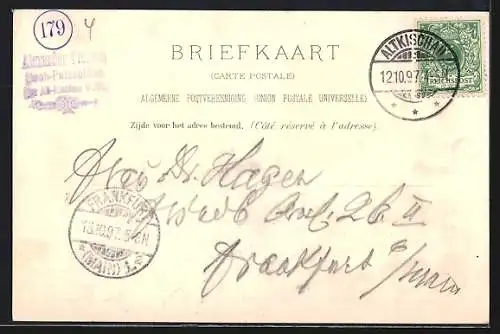 179 4
BRIEFKAART
(CARTE POSTALE)
ALGEMEENE POSTVEREENIGING (UNION POSTALE UNIVERSELLE)
Zijde voor het adres bestemd. (Côté réservé à l'adresse).
ALTKISCHAU
12.10.97. 7-8N.
REICHSPOST
Frau Dr. Hagen
26 II
Frankfurt a/Main
FRANKFURT
13.10.97. 5-6N.
(MAIN) 1.